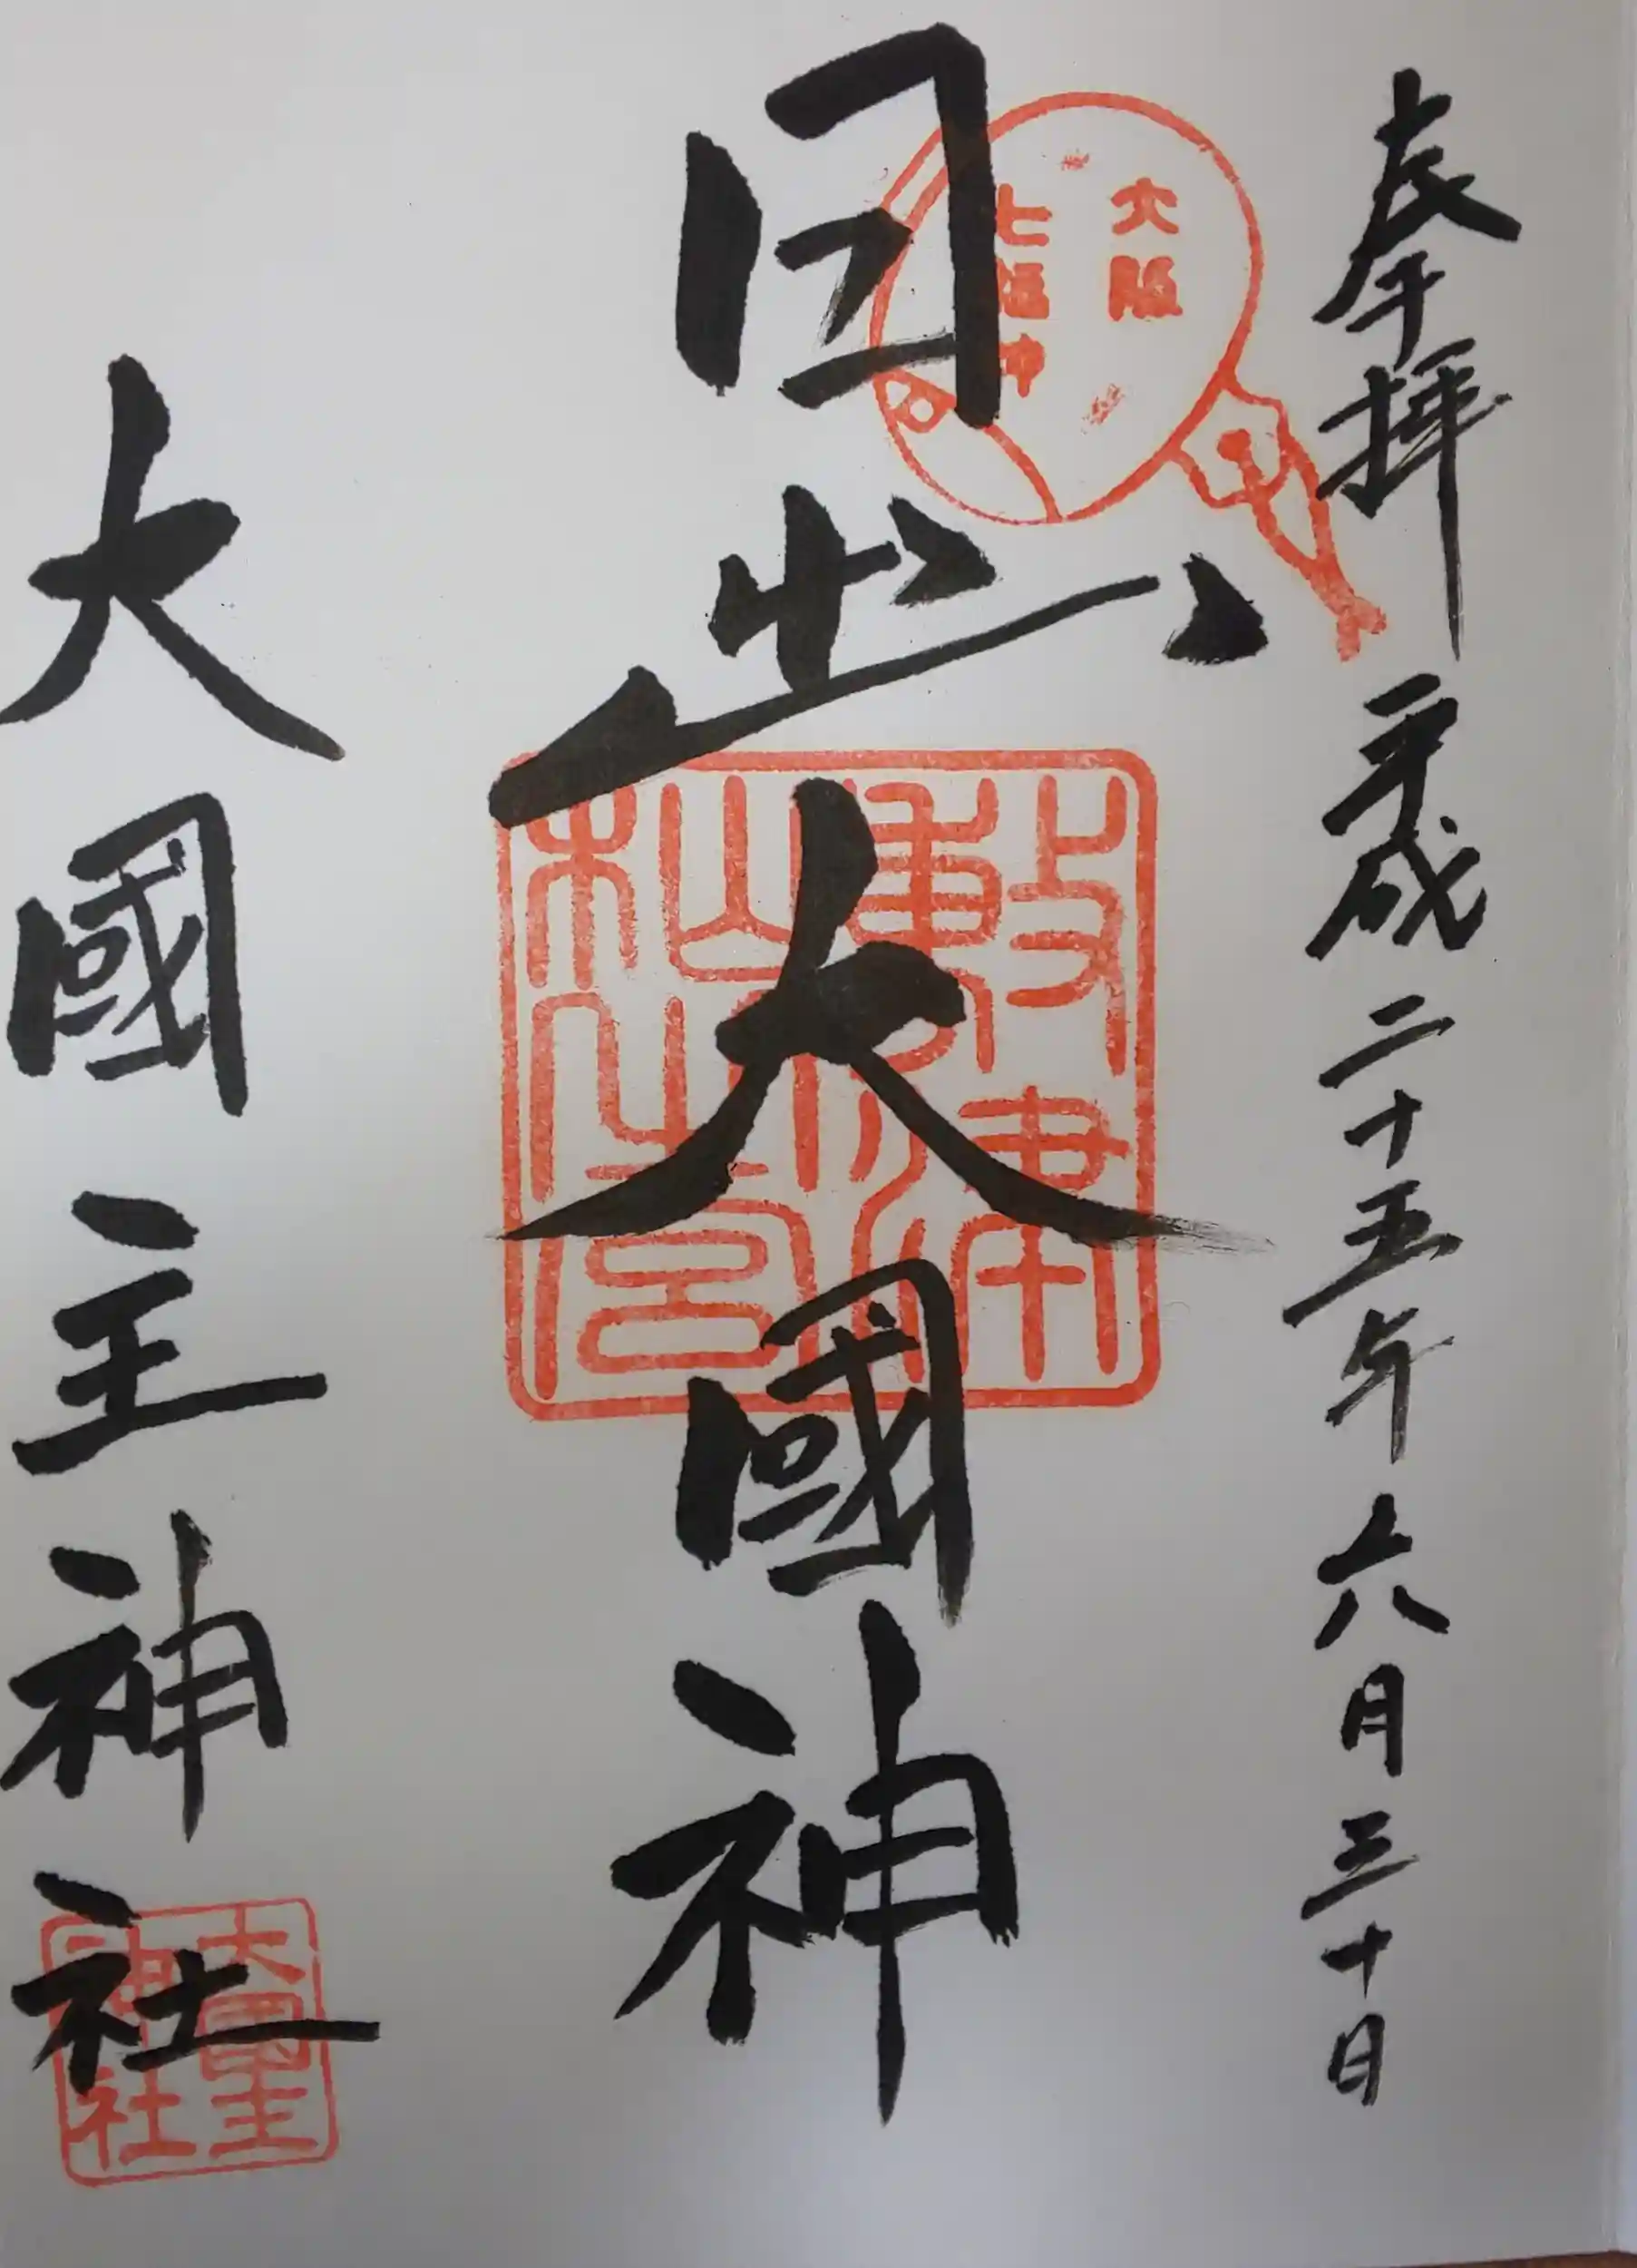 奉拝 平成二十五年六月三十日
大阪
七福神
日出大國神
敷津
松之宮
大國主神社
大国主
神社